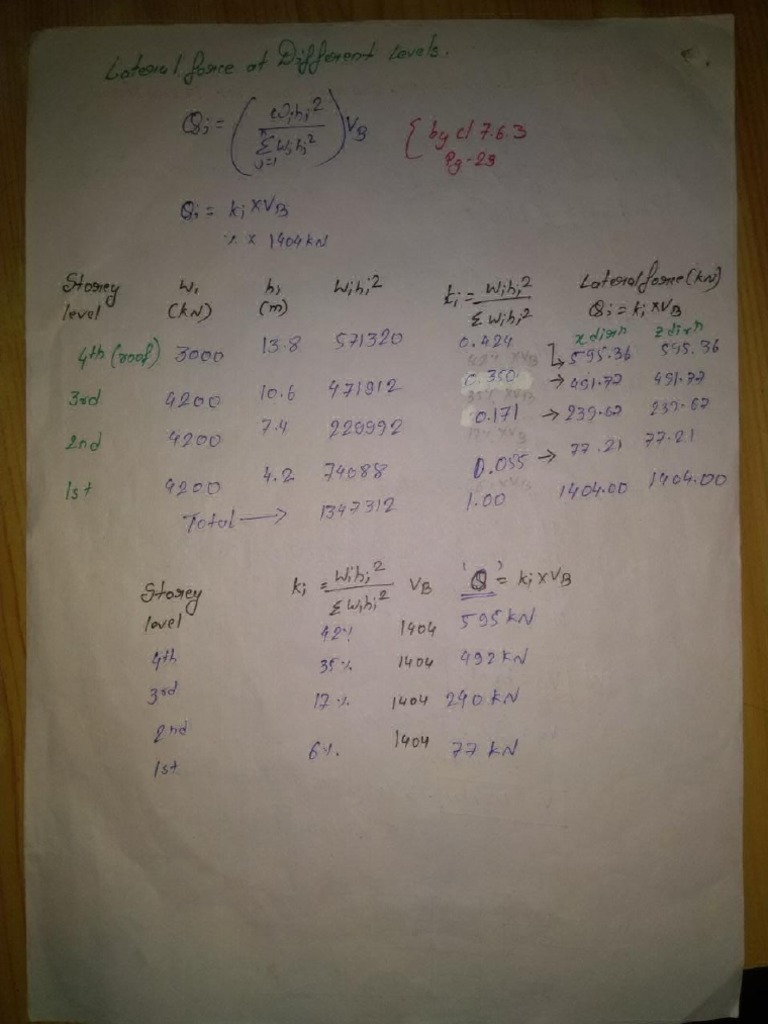 Lateral force at Different Levels.
Qi = ( Wihi² / Σ Wjhj² ) VB { by cl 7.6.3
n
j=1
Pg-29
Qi = ki x VB
% x 1404 kN
Storey level Wi (kN) hi (m) Wihi² ki = Wihi² / Σ Wihi² Lateral force (kN) Qi = ki x VB
x dirⁿ z dirⁿ
4th (roof) 3000 13.8 571320 0.424 → 595.36 595.36
3rd 4200 10.6 471912 0.350 → 491.77 491.77
2nd 4200 7.4 229992 0.171 → 239.67 239.67
1st 4200 4.2 74088 0.055 → 77.21 77.21
Total → 1347312 1.00 1404.00 1404.00
Storey level ki = Wihi² / Σ Wihi² VB 'Q' = ki x VB
4th 42% 1404 595 kN
3rd 35% 1404 492 kN
2nd 17% 1404 240 kN
1st 6% 1404 77 kN